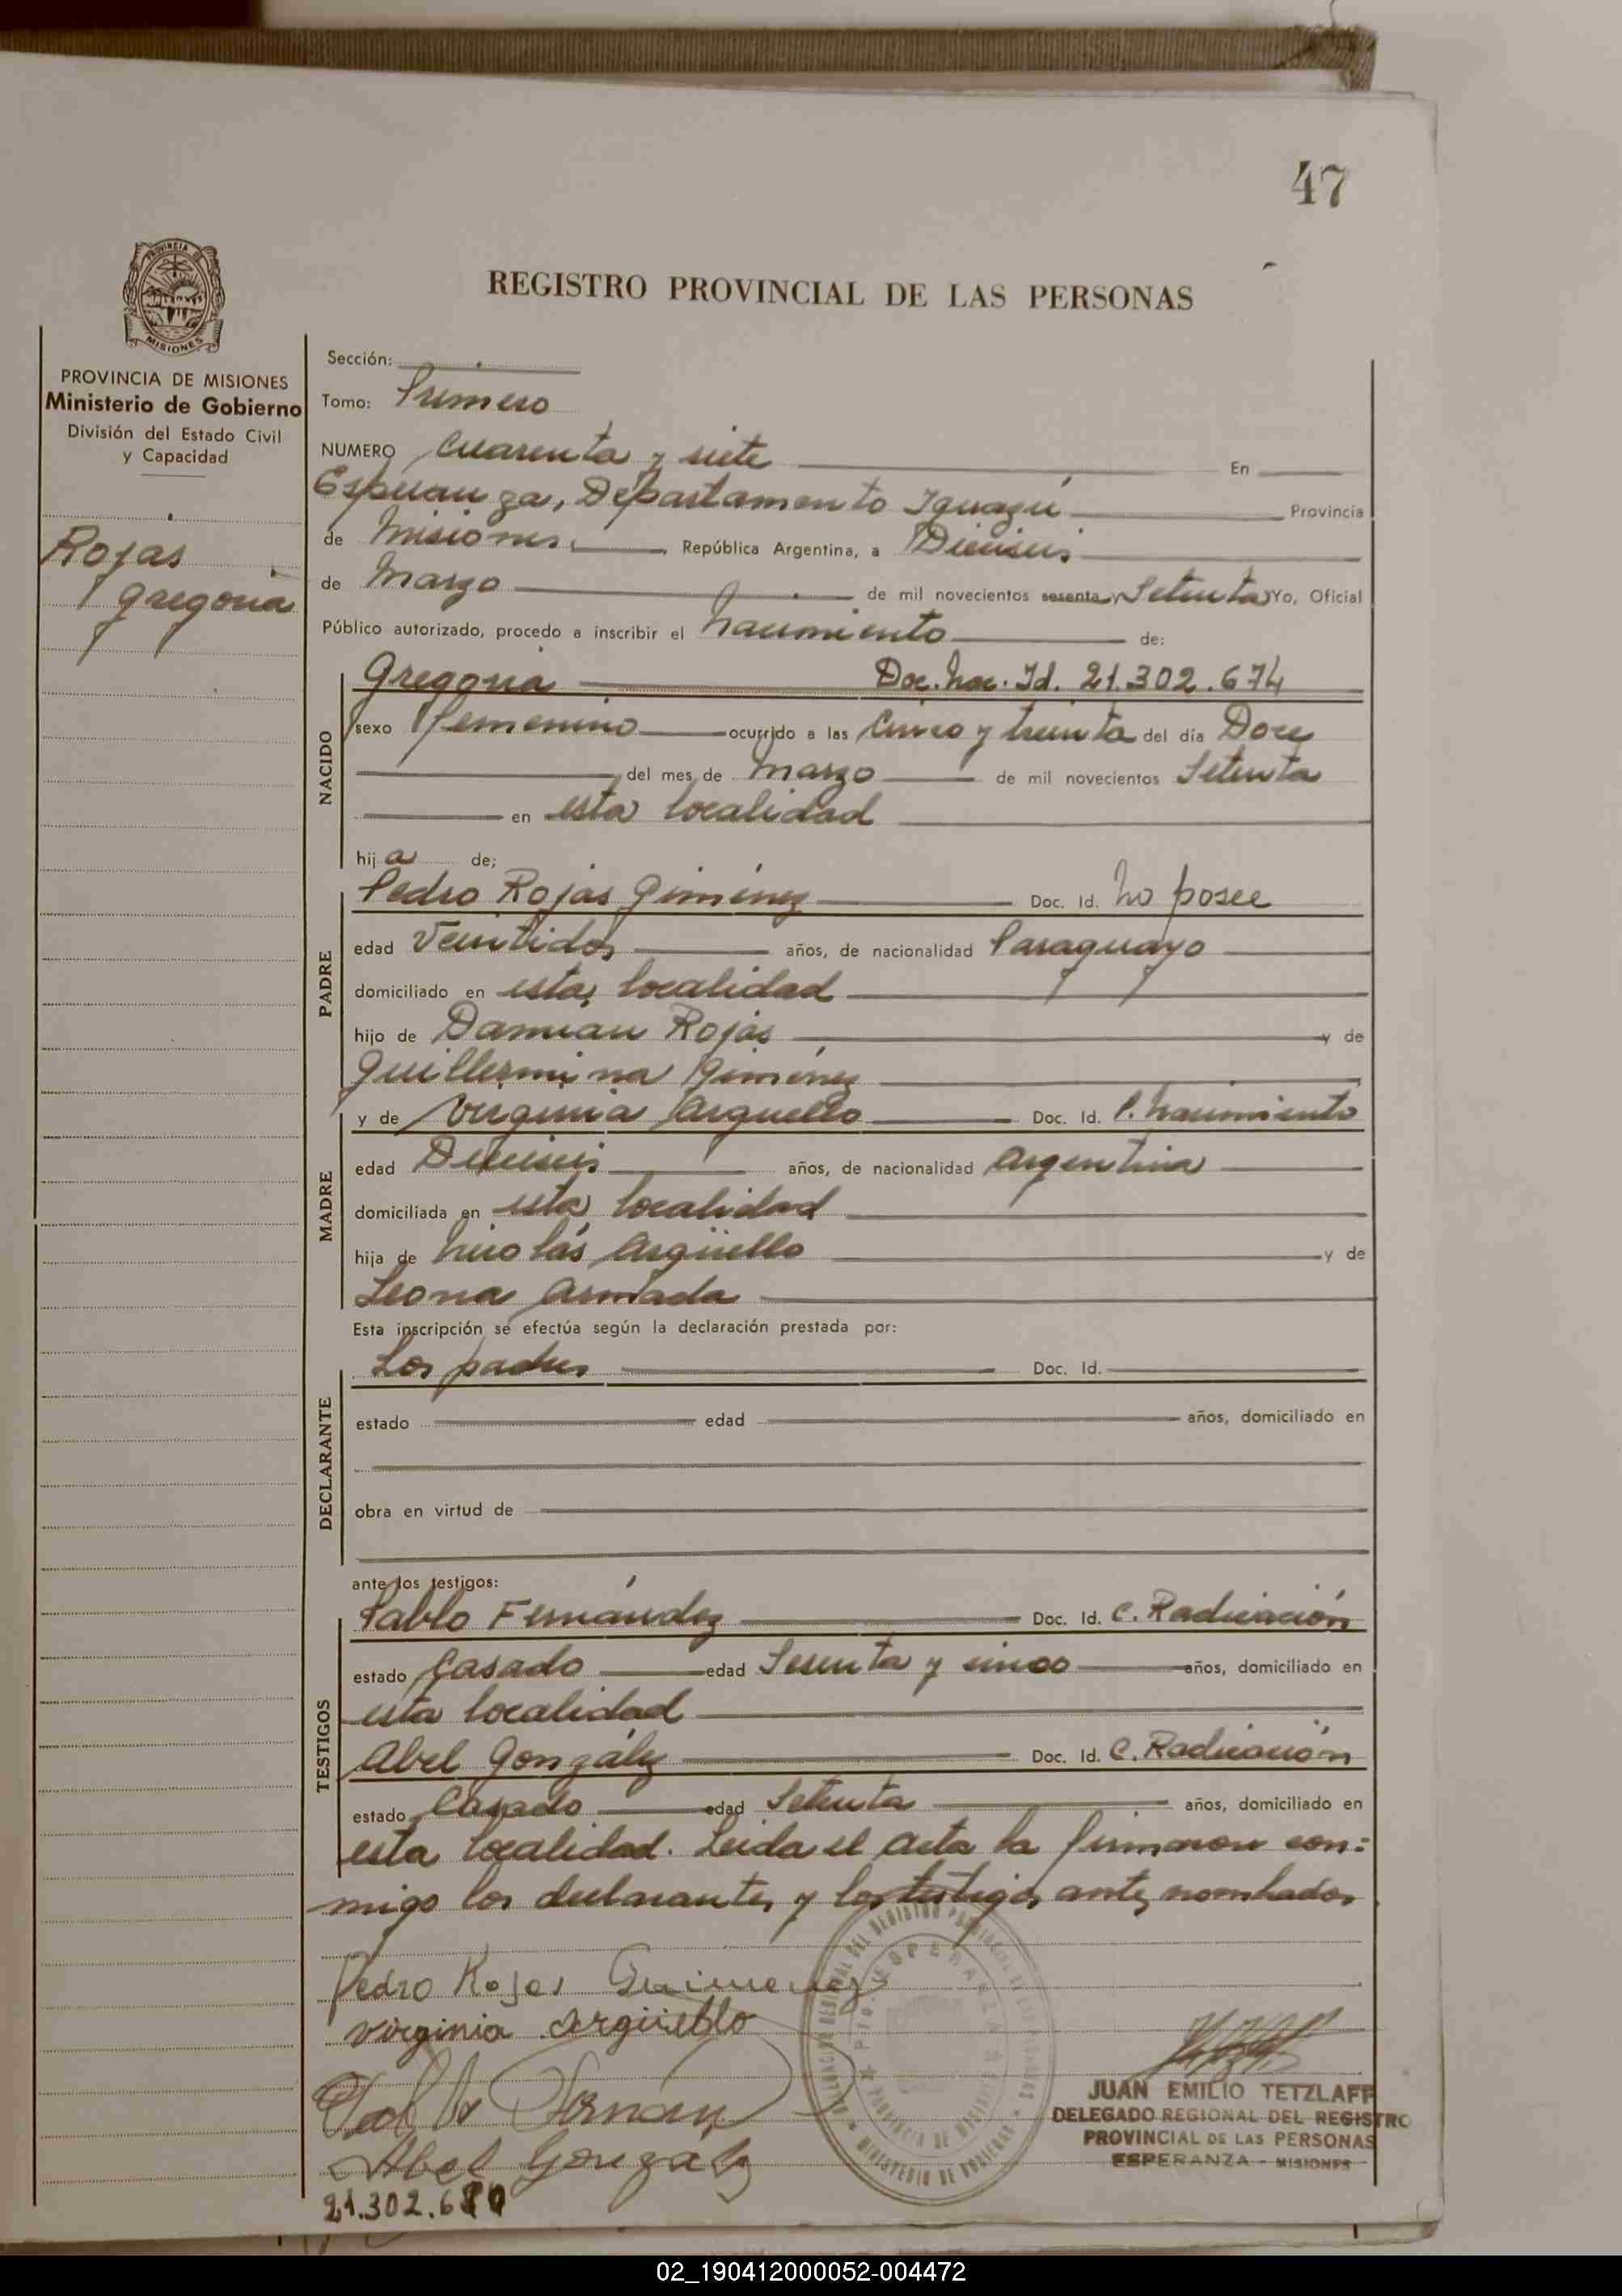 47
PROVINCIA DE
MISIONES
REGISTRO PROVINCIAL DE LAS PERSONAS
PROVINCIA DE MISIONES
Ministerio de Gobierno
División del Estado Civil
y Capacidad
Rojas
Gregoria
Sección:
Tomo: Primero
NUMERO Cuarenta y siete En
Esperanza, Departamento Iguazú Provincia
de Misiones, República Argentina, a Dieciseis
de Marzo de mil novecientos sesenta y Setenta Yo, Oficial
Público autorizado, procedo a inscribir el Nacimiento de:
NACIDO
Gregoria Doc. Nac. Id. 21.302.674
sexo femenino ocurrido a las Cinco y treinta del día Doce
del mes de Marzo de mil novecientos Setenta
en esta localidad
hija de;
PADRE
Pedro Rojas Giménez Doc. Id. No posee
edad Veintidos años, de nacionalidad Paraguayo
domiciliado en esta localidad
hijo de Damian Rojas y de
Guillermina Giménez
MADRE
y de Virginia Arguello Doc. Id. P. Nacimiento
edad Dieciseis años, de nacionalidad Argentina
domiciliada en esta localidad
hija de Nicolás Argüello y de
Leona Armada
Esta inscripción se efectúa según la declaración prestada por:
DECLARANTE
Los padres Doc. Id.
estado edad años, domiciliado en
obra en virtud de
ante los testigos:
TESTIGOS
Pablo Fernández Doc. Id. C. Radicación
estado Casado edad Sesenta y cinco años, domiciliado en
esta localidad
Abel González Doc. Id. C. Radicación
estado Casado edad Setenta años, domiciliado en
esta localidad. Leida el acta la firmaron con=
migo los declarantes y los testigos antes nombrados
Pedro Rojas
virginia argüello
Abel Gonzalez
21.302.6
JUAN EMILIO TETZLAFF
DELEGADO REGIONAL DEL REGISTRO
PROVINCIAL DE LAS PERSONAS
ESPERANZA - MISIONES
02_190412000052-004472